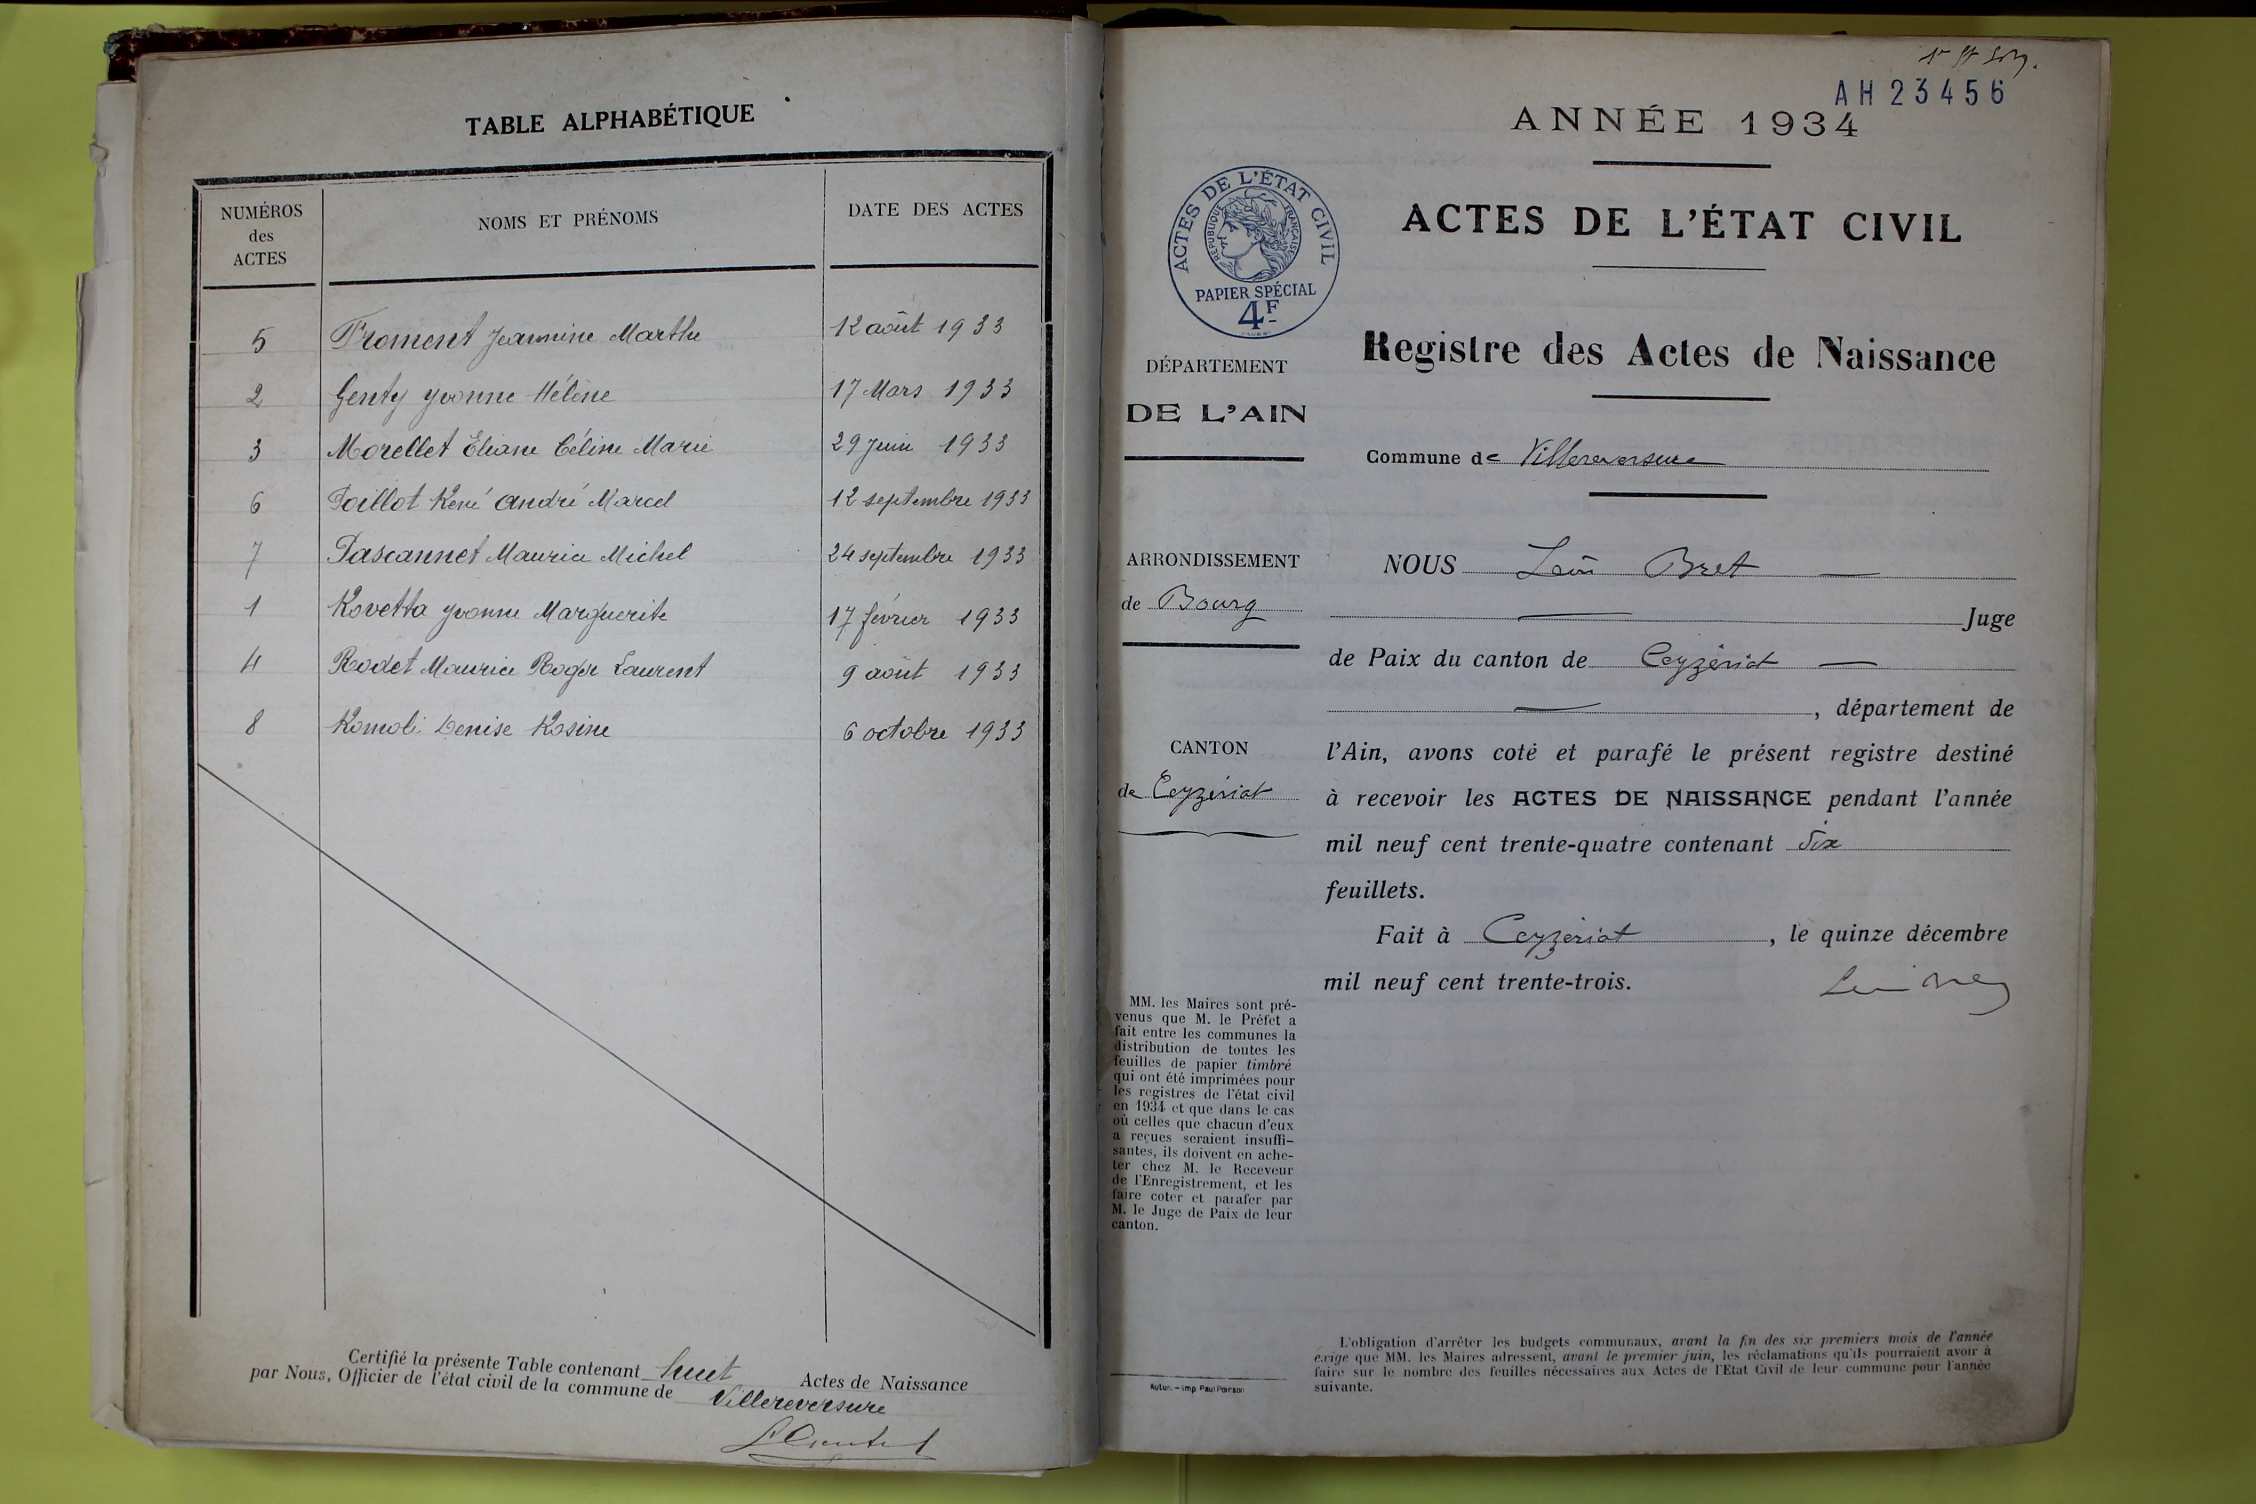 TABLE ALPHABÉTIQUE
NUMÉROS des ACTES NOMS ET PRÉNOMS DATE DES ACTES
5 Froment Jeannine Marthe 12 août 1933
2 Genty Yvonne Hélène 17 Mars 1933
3 Morellet Eliane Céline Marie 29 Juin 1933
6 Poillot René André Marcel 12 septembre 1933
7 Pascannet Maurice Michel 24 septembre 1933
1 Rovetta Yvonne Marguerite 17 février 1933
4 Rodet Maurice Roger Laurent 9 août 1933
8 Romoli Denise Rosine 6 octobre 1933
Certifié la présente Table contenant huit Actes de Naissance
par Nous, Officier de l'état civil de la commune de Villereversure
AH 23456
ANNÉE 1934
ACTES DE L'ÉTAT CIVIL
RÉPUBLIQUE FRANÇAISE
PAPIER SPÉCIAL
4F
ACTES DE L'ÉTAT CIVIL
Registre des Actes de Naissance
DÉPARTEMENT
DE L'AIN
Commune de Villereversure
ARRONDISSEMENT
de Bourg
CANTON
de Ceyzériat
NOUS Léon Bret
Juge
de Paix du canton de Ceyzériat
, département de
l'Ain, avons coté et parafé le présent registre destiné
à recevoir les ACTES DE NAISSANCE pendant l'année
mil neuf cent trente-quatre contenant Six
feuillets.
Fait à Ceyzériat, le quinze décembre
mil neuf cent trente-trois.
MM. les Maires sont pré-
venus que M. le Préfet a
fait entre les communes la
distribution de toutes les
feuilles de papier timbré
qui ont été imprimées pour
les registres de l'état civil
en 1934 et que dans le cas
où celles que chacun d'eux
a reçues seraient insuffi-
santes, ils doivent en ache-
ter chez M. le Receveur
de l'Enregistrement, et les
faire coter et parafer par
M. le Juge de Paix de leur
canton.
Autun. – Imp. Paul Poirson
L'obligation d'arrêter les budgets communaux, avant la fin des six premiers mois de l'année
exige que MM. les Maires adressent, avant le premier juin, les réclamations qu'ils pourraient avoir à
faire sur le nombre des feuilles nécessaires aux Actes de l'Etat Civil de leur commune pour l'année
suivante.